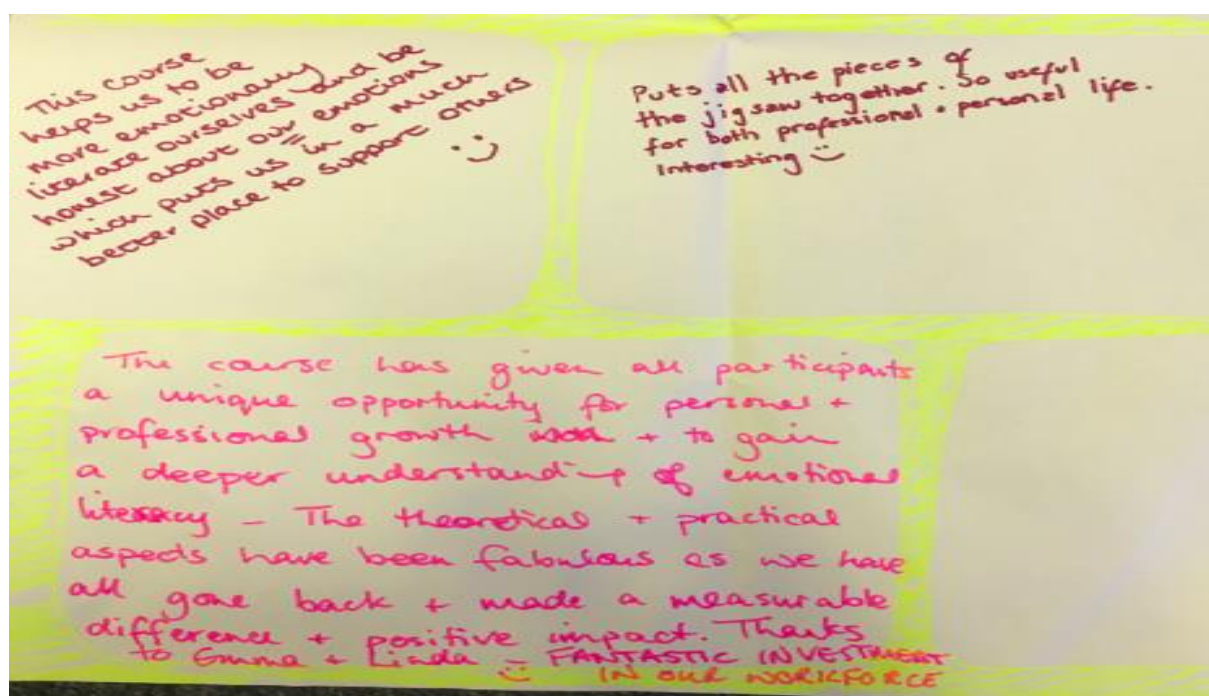 This course
helps us to be
more emotionally
literate ourselves and be
honest about our emotions
which puts us in a much
better place to support others
Puts all the pieces of
the jigsaw together. So useful
for both professional + personal life.
Interesting
The course has given all participants
a unique opportunity for personal +
professional growth + to gain
a deeper understanding of emotional
literacy – The theoretical + practical
aspects have been fabulous as we have
all gone back + made a measurable
difference + positive impact. Thanks
to Emma + Linda – FANTASTIC INVESTMENT
IN OUR WORKFORCE